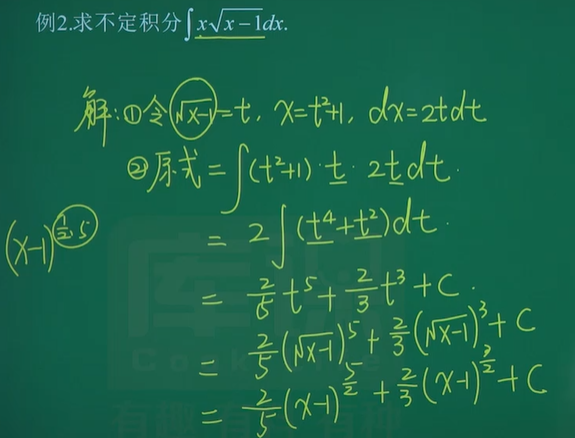 例2.求不定积分∫x√(x-1)dx.
解:①令√(x-1)=t, x=t²+1, dx=2tdt
②原式=∫(t²+1)·t·2tdt.
=2∫(t⁴+t²)dt.
(x-1)^(1/2·5)
=2/5 t⁵+2/3 t³+C.
=2/5(√(x-1))⁵+2/3(√(x-1))³+C
=2/5(x-1)^(5/2)+2/3(x-1)^(3/2)+C